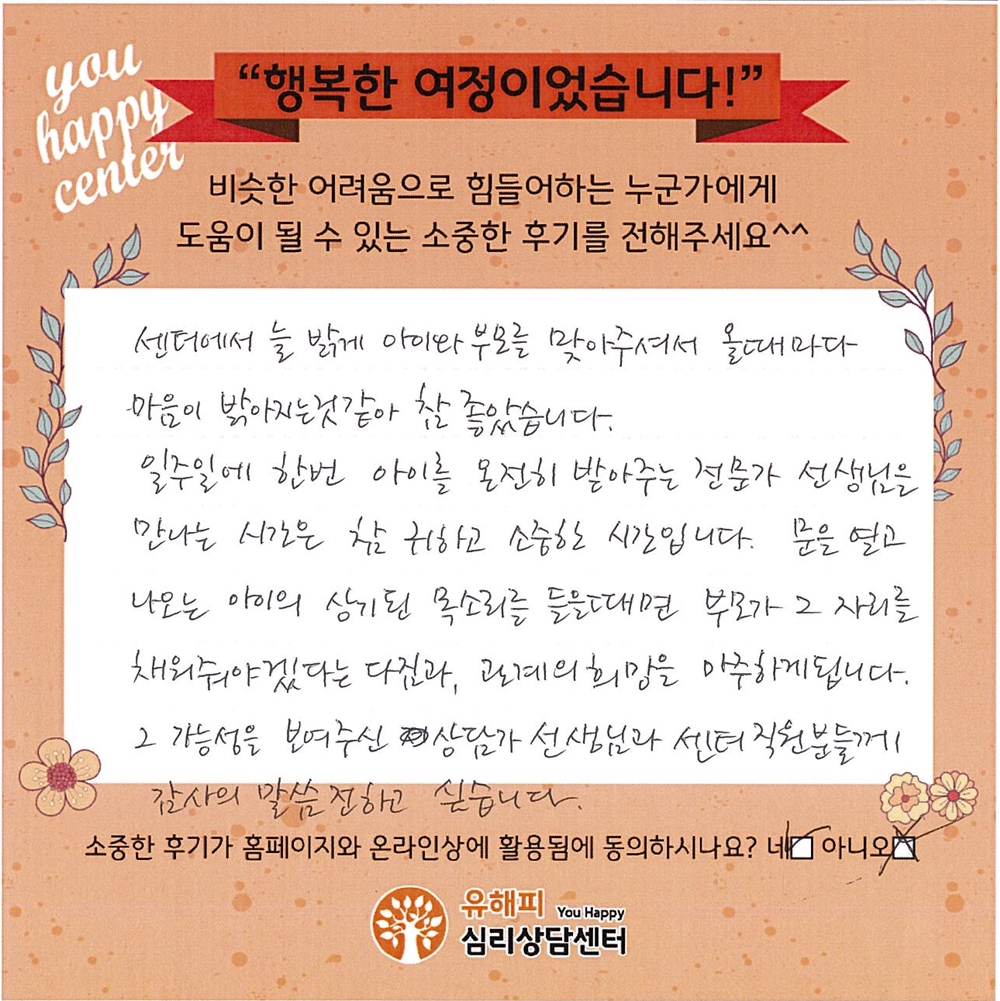 you
happy
center
“행복한 여정이었습니다!”
비슷한 어려움으로 힘들어하는 누군가에게
도움이 될 수 있는 소중한 후기를 전해주세요^^
센터에서 늘 밝게 아이와 부모를 맞아주셔서 올때마다
마음이 밝아지는것같아 참 좋았습니다.
일주일에 한번 아이를 온전히 받아주는 전문가 선생님을
만나는 시간은 참 귀하고 소중한 시간입니다. 문을 열고
나오는 아이의 상기된 목소리를 들을때면 부모가 그 자리를
채워줘야겠다는 다짐과, 관계의 희망을 마주하게됩니다.
그 가능성을 보여주신 상담가 선생님과 센터 직원분들께
감사의 말씀 전하고 싶습니다.
소중한 후기가 홈페이지와 온라인상에 활용됨에 동의하시나요? 네 아니오
유해피 You Happy
심리상담센터